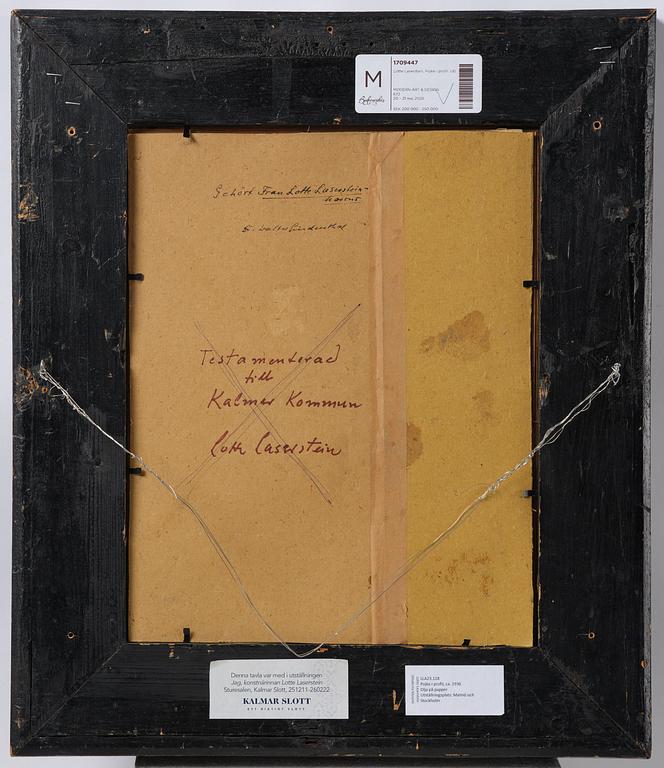 M
1709447
Lotte Laserstein, Pojke i profil. (d)
MODERN ART & DESIGN
670
20 - 21 maj 2026
SEK 200 000 - 250 000
Gehört Frau Lotte Laserstein-
Testamenterad
till
Kalmar Kommun
Lotte Laserstein
Denna tavla var med i utställningen
Jag, konstnärinnan Lotte Laserstein
Sturesalen, Kalmar Slott, 251211-260222
KALMAR SLOTT
ETT RIKTIGT SLOTT
LLA23,118
Pojke i profil, ca. 1936
Olja på papper
Utställningsplats: Malmö och
Stockholm